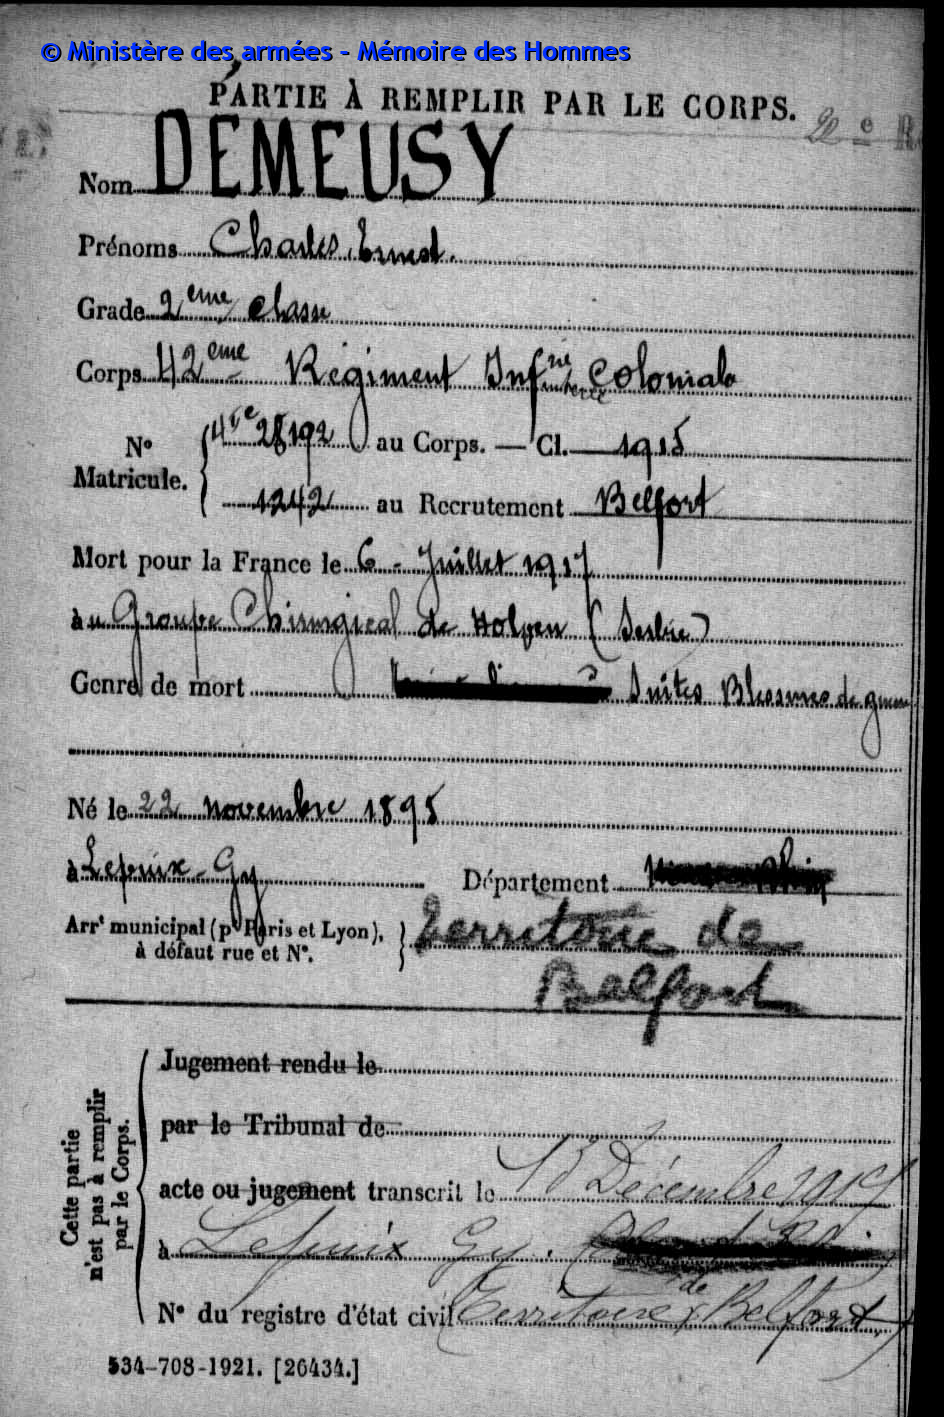 © Ministère des armées - Mémoire des Hommes
PARTIE À REMPLIR PAR LE CORPS.
Nom DEMEUSY
Prénoms Charles, Ernest.
Grade 2eme classe
Corps 42eme Régiment Infrie Coloniale
N° Matricule. 28192 au Corps. — Cl. 1915
1242 au Recrutement Belfort
Mort pour la France le 6 - Juillet 1917
au Groupe Chirurgical de Holven (Serbie)
Genre de mort Suites Blessures de guerre
Né le 22 novembre 1895
à Lepuix-Gy Département
Arrt municipal (pr Paris et Lyon), à défaut rue et N°. Territoire de
Belfort
Cette partie n'est pas à remplir par le Corps.
Jugement rendu le
par le Tribunal de
acte ou jugement transcrit le 13 Décembre 1917
à Lepuix Gy.
N° du registre d'état civil (Territoire de Belfort)
534-708-1921. [26434.]